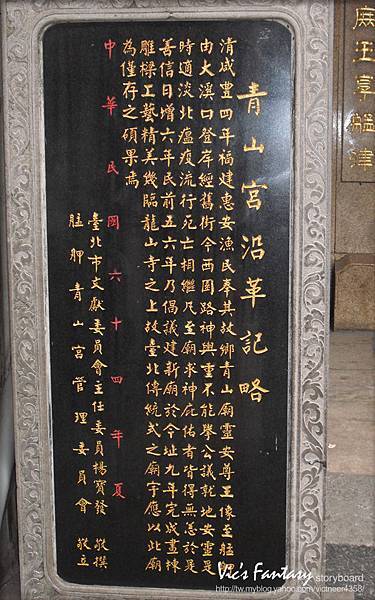 青山宮沿革記略
清咸豐四年福建惠安漁民奉其故鄉青山廟靈安尊王像至艋舺
由大溪口登岸經舊街今西園路神輿重不能舉公議就地安靈是
時適淡北瘟疫流行死亡相繼凡至廟求神庇佑者皆得無恙於是
善信日增六年民前五六年乃倡議建新廟於今址九年完成畫棟
雕樑工藝精美幾臨龍山寺之上故臺北傳統式之廟宇應以此廟
為僅存之碩果焉
中華民國六十四年夏
臺北市文獻委員會主任委員楊寶發 敬撰
艋舺青山宮管理委員會 敬立
Vic's Fantasy storyboard
http://tw.myblog.yahoo.com/victneer4358/